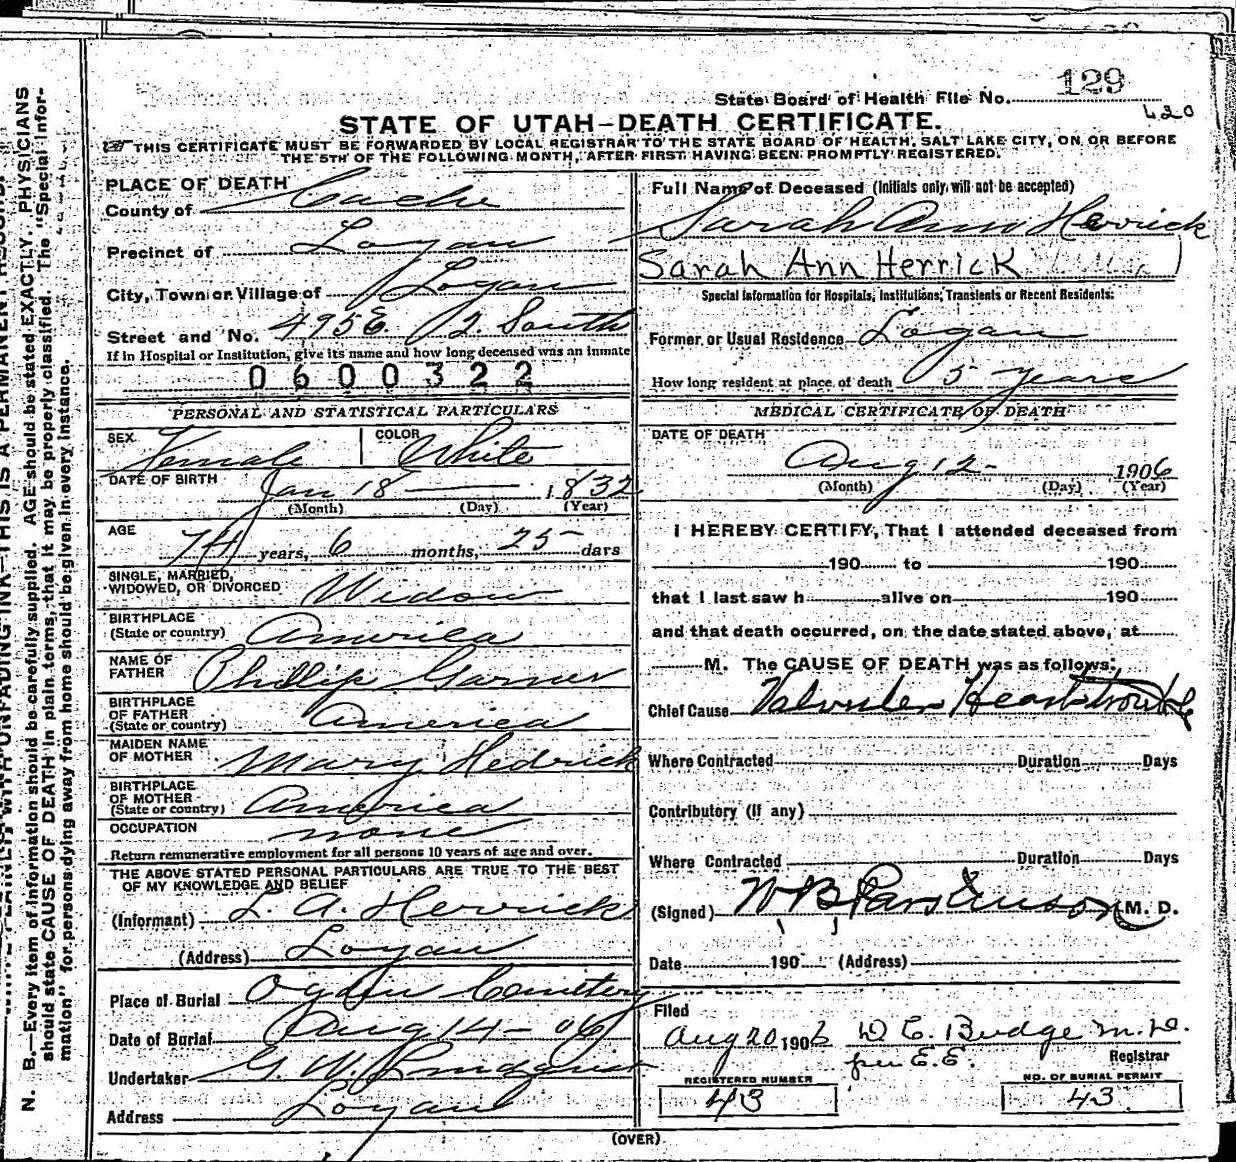 129
State Board of Health File No.
420
STATE OF UTAH-DEATH CERTIFICATE.
THIS CERTIFICATE MUST BE FORWARDED BY LOCAL REGISTRAR TO THE STATE BOARD OF HEALTH, SALT LAKE CITY, ON OR BEFORE
THE 5TH OF THE FOLLOWING MONTH, AFTER FIRST HAVING BEEN PROMPTLY REGISTERED.
PLACE OF DEATH
County of Cache
Precinct of Logan
City, Town or Village of Logan
Street and No. 495 E. 2. South
If in Hospital or Institution, give its name and how long deceased was an inmate
0600322
PERSONAL AND STATISTICAL PARTICULARS
SEX Female COLOR White
DATE OF BIRTH Jan 18 1832
(Month) (Day) (Year)
AGE 74 years, 6 months, 25 days
SINGLE, MARRIED,
WIDOWED, OR DIVORCED Widow
BIRTHPLACE
(State or country) America
NAME OF
FATHER Phillip Garner
BIRTHPLACE
OF FATHER
(State or country) America
MAIDEN NAME
OF MOTHER Mary Hedrick
BIRTHPLACE
OF MOTHER
(State or country) America
OCCUPATION none
Return remunerative employment for all persons 10 years of age and over.
THE ABOVE STATED PERSONAL PARTICULARS ARE TRUE TO THE BEST
OF MY KNOWLEDGE AND BELIEF
(Informant) L. A. Herrick
(Address) Logan
Place of Burial Ogden Cemetery
Date of Burial Aug 14 - 06
Undertaker G. W. Lindquist
Address Logan
Full Name of Deceased (Initials only will not be accepted)
Sarah Ann Herrick
Sarah Ann Herrick
Special Information for Hospitals, Institutions, Transients or Recent Residents:
Former or Usual Residence Logan
How long resident at place of death 5 years
MEDICAL CERTIFICATE OF DEATH
DATE OF DEATH
Aug 12 - 1906
(Month) (Day) (Year)
I HEREBY CERTIFY, That I attended deceased from
190 to 190
that I last saw h alive on 190
and that death occurred, on the date stated above, at
M. The CAUSE OF DEATH was as follows:
Chief Cause Valvular Heart trouble
Where Contracted Duration Days
Contributory (if any)
Where Contracted Duration Days
(Signed) W. B. Parkinson M. D.
Date 190 (Address)
Filed
Aug 20 1906 D C. Budge M. D.
per E. E. Registrar
REGISTERED NUMBER NO. OF BURIAL PERMIT
43 43
(OVER)
N. B.—Every item of information should be carefully supplied. AGE should be stated EXACTLY. PHYSICIANS
should state CAUSE OF DEATH in plain terms, that it may be properly classified. The "Special Infor-
mation" for persons dying away from home should be given in every instance.